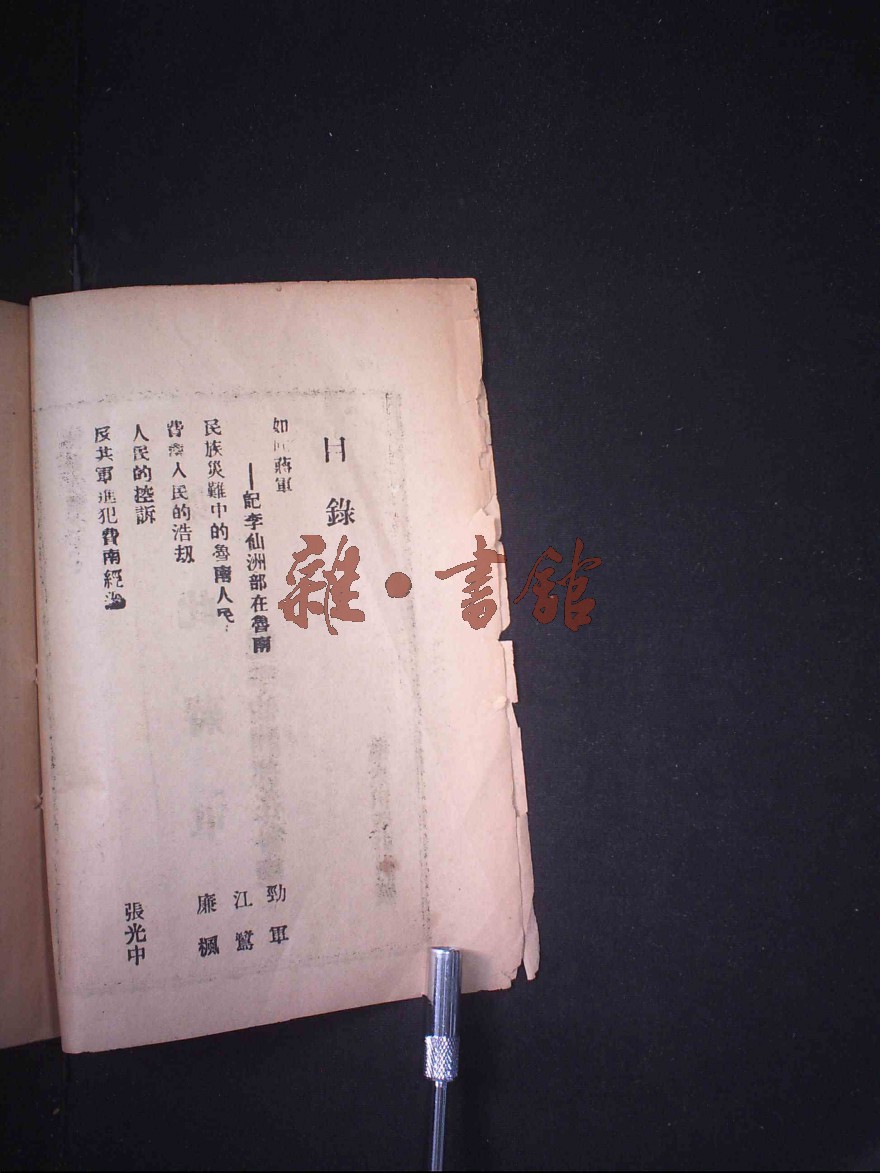 目錄
如 蔣軍
—記李仙洲部在魯南
勁軍
江鷺
民族災難中的魯南人民
廉楓
費 人民的浩劫
人民的控訴
張光中
反共軍進犯費南經過
雜·書館